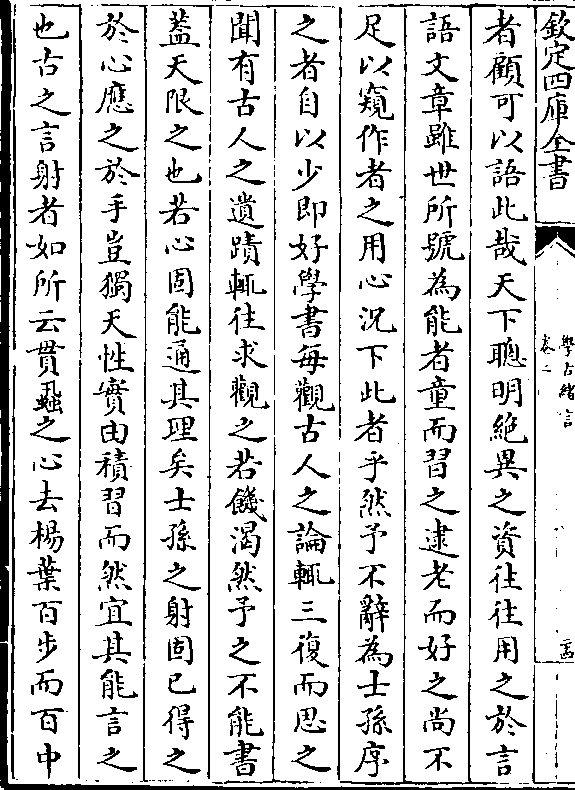 欽定四庫全書
學古緒言
卷二
者顧可以語此哉天下聰明絶異之資往往用之於言
語文章雖世所號為能者童而習之逮老而好之尚不
足以窺作者之用心況下此者乎然予不辭為士孫序
之者自以少即好學書每觀古人之論輒三復而思之
聞有古人之遺蹟輒往求觀之若饑渴然予之不能書
蓋天限之也若心固能通其理矣士孫之射固已得之
於心應之於手豈獨天性實由積習而然宜其能言之
也古之言射者如所云貫蝨之心去楊葉百步而百中